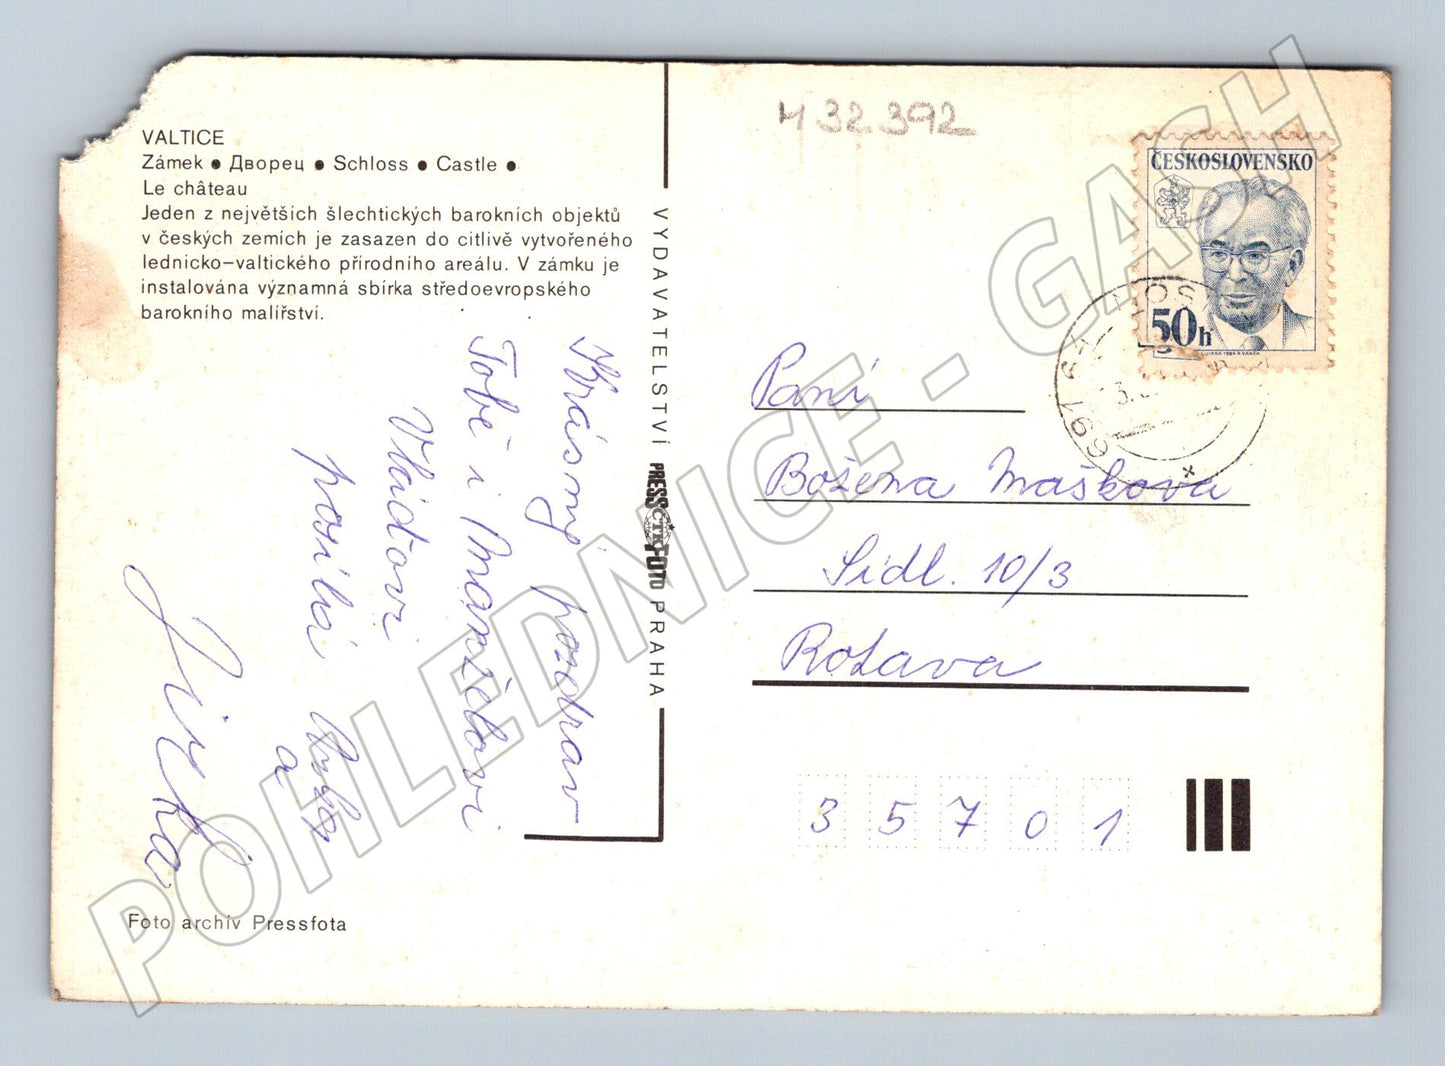 VALTICE
Zámek ● Дворец ● Schloss ● Castle ●
Le château
Jeden z největších šlechtických barokních objektů
v českých zemích je zasazen do citlivě vytvořeného
lednicko–valtického přírodního areálu. V zámku je
instalována významná sbírka středoevropského
barokního malířství.
Krásný pozdrav
Tobě i manželovi
Vláďovi
posílá
a
Jirka
Foto archív Pressfota
VYDAVATELSTVÍ PRESSFOTO PRAHA
ČTK
432392
ČESKOSLOVENSKO
50h
691
Paní
Božena Maškova
Sídl. 10/3
Rotava
35701
POHLEDNICE - GASH